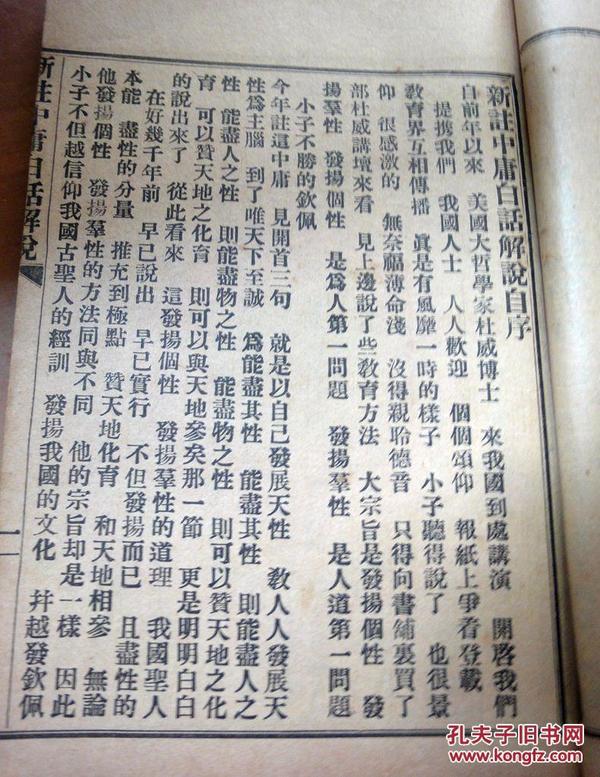 新註中庸白話解說自序
自前年以來 美國大哲學家杜威博士 來我國到處講演 開啓我們
提携我們 我國人士 人人歡迎 個個頌仰 報紙上爭者登載
敎育界互相傳播 眞是有風靡一時的樣子 小子聽得說了 也很景
仰 很感激的 無奈福薄命淺 沒得親聆德音 只得向書舖裏買了
部杜威講壇來看 見上邊說了些敎育方法 大宗旨是發揚個性 發
揚羣性 發揚個性 是爲人第一問題 發揚羣性 是人道第一問題
小子不勝的欽佩
今年註這中庸 見開首三句 就是以自己發展天性 敎人人發展天
性爲主腦 到了唯天下至誠 爲能盡其性 能盡其性 則能盡人之
性 能盡人之性 則能盡物之性 能盡物之性 則可以贊天地之化
育 可以贊天地之化育 則可以與天地參矣那一節 更是明明白白
的說出來了 從此看來 這發揚個性 發揚羣性的道理 我國聖人
在好幾千年前 早已說出 早已實行 不但發揚而已 且盡性的
本能 盡性的分量 推充到極點 贊天地化育 和天地相參 無論
他發揚個性 發揚羣性的方法同與不同 他的宗旨却是一樣 因此
小子不但越信仰我國古聖人的經訓 發揚我國的文化 幷越發欽佩
新註中庸白話解說
一
孔夫子旧书网
www.kongfz.com